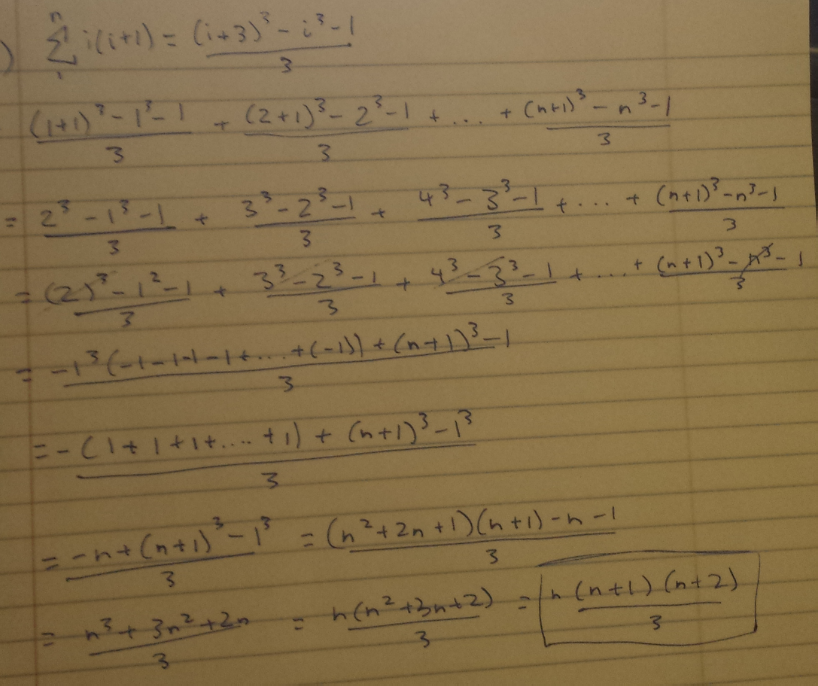 ) n Σ i i(i+1) = ((i+3)³ - i³ - 1)/3
((1+1)³ - 1³ - 1)/3 + ((2+1)³ - 2³ - 1)/3 + ... + ((n+1)³ - n³ - 1)/3
= (2³ - 1³ - 1)/3 + (3³ - 2³ - 1)/3 + (4³ - 3³ - 1)/3 + ... + ((n+1)³ - n³ - 1)/3
= ((2)³ - 1² - 1)/3 + (3³ - 2³ - 1)/3 + (4³ - 3³ - 1)/3 + ... + ((n+1)³ - n³ - 1)/3
= (-1³(-1-1-1-1+...+(-1)) + (n+1)³ - 1)/3
= -(1+1+1+....+1) + (n+1)³ - 1³/3
= (-n + (n+1)³ - 1³)/3 = ((n²+2n+1)(n+1) - n - 1)/3
= (n³ + 3n² + 2n)/3 = n(n²+3n+2)/3 = n(n+1)(n+2)/3